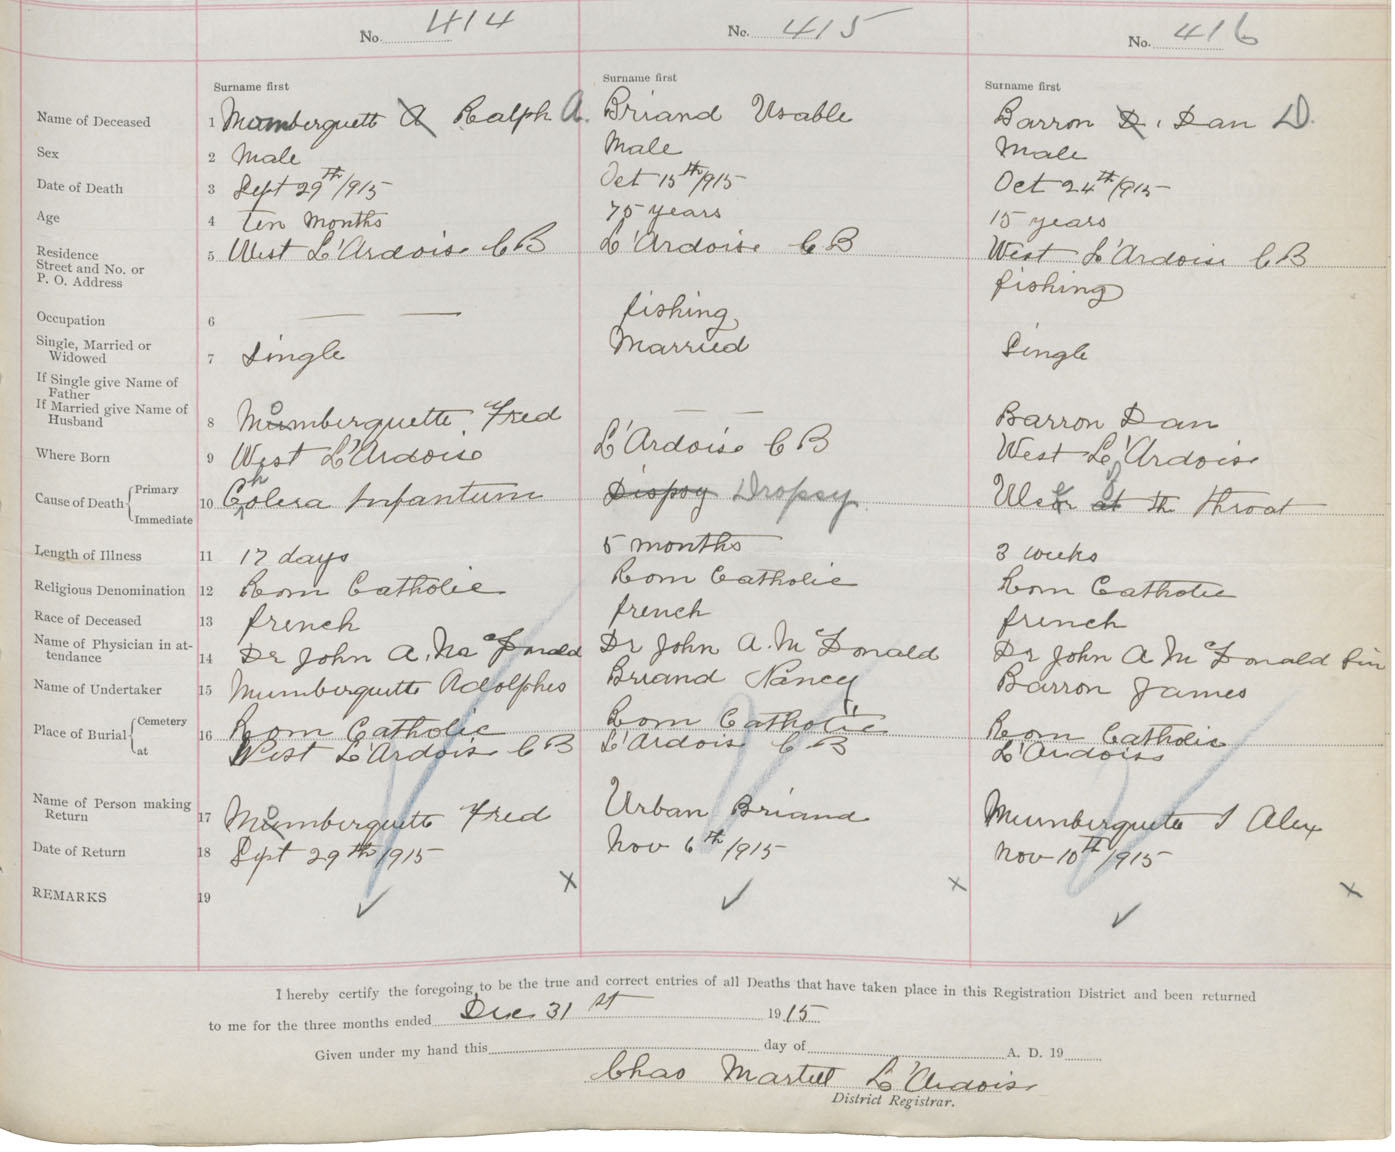 No. 414 No. 415 No. 416
Surname first Surname first Surname first
Name of Deceased 1 Mumberquette A Ralph A. Briand Usable Barron D. Dan D.
Sex 2 Male Male Male
Date of Death 3 Sept 29th/915 Oct 15th/915 Oct 24th/915
Age 4 ten Months 75 years 15 years
Residence 5 West L'Ardoise C B L'Ardoise C B West L'Ardoise C B
Street and No. or
P. O. Address fishing
Occupation 6 — — fishing
Single, Married or
Widowed 7 Single Married Single
If Single give Name of
Father
If Married give Name of
Husband 8 Momberquette Fred — — Barron Dan
Where Born 9 West L'Ardoise L'Ardoise C B West L'Ardoise
Cause of Death { Primary
Immediate 10 Cholera Infantum Dispoy Dropsy Ulcer at of the throat
Length of Illness 11 17 days 5 months 3 weeks
Religious Denomination 12 Rom Catholic Rom Catholic Rom Catholic
Race of Deceased 13 french french french
Name of Physician in at-
tendance 14 Dr John A. McDonald Dr John A. McDonald Dr John A McDonald
Name of Undertaker 15 Mumberquette Adolphes Briand Nancy Barron James
Place of Burial { Cemetery 16 Rom Catholic Rom Catholic Rom Catholic
at West L'Ardoise C B L'Ardois C B L'Ardoise
Name of Person making
Return 17 Momberquette Fred Urban Briand Mumberquette S Alex
Date of Return 18 Sept 29th/915 Nov 6th/915 Nov 10th/915
REMARKS 19 x x x
I hereby certify the foregoing to be the true and correct entries of all Deaths that have taken place in this Registration District and been returned
to me for the three months ended Dec 31st 1915
Given under my hand this day of A. D. 19
Chas Martell L'Ardois
District Registrar.